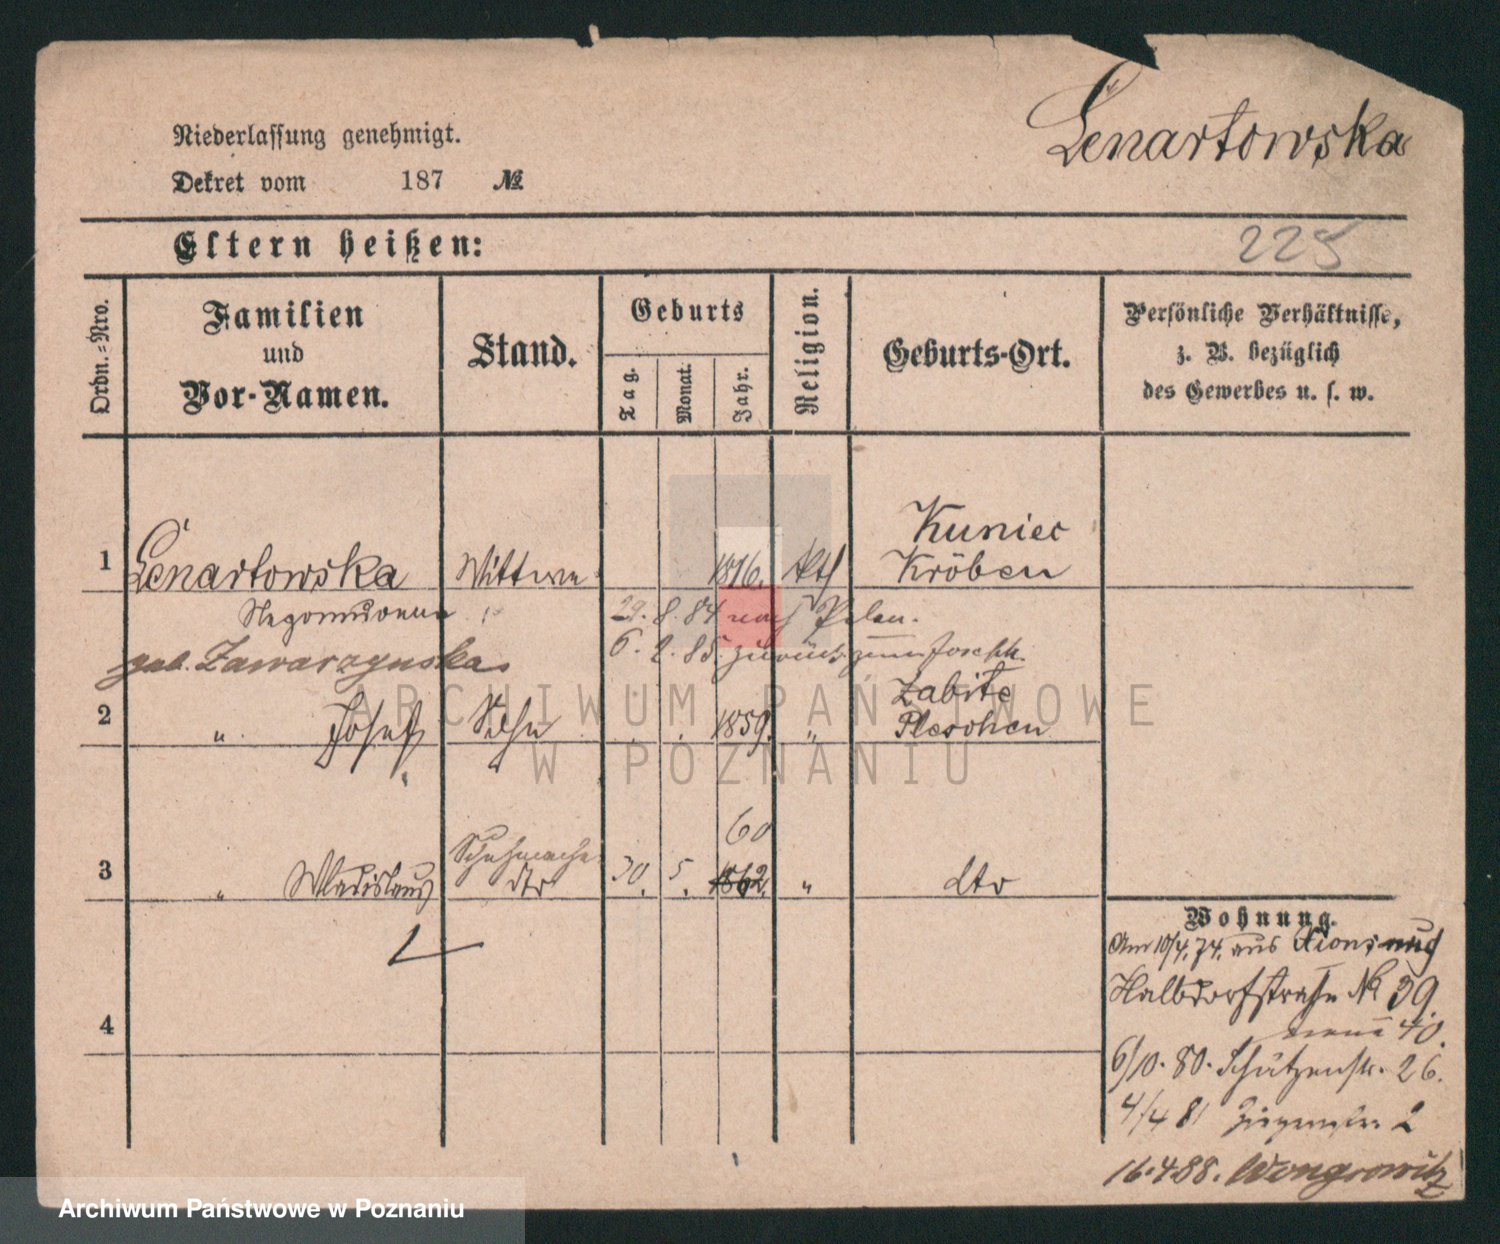 Lenartowska
Niederlassung genehmigt.
Dekret vom 187 №
Eltern heißen:
228
Ordn.-Nro.
Familien
und
Vor-Namen.
Stand.
Geburts
Tag.
Monat.
Jahr.
Religion.
Geburts-Ort.
Persönliche Verhältnisse,
z. B. bezüglich
des Gewerbes u. s. w.
Kuniec
1 Lenartowska Wittwe 1816. Kth Kröben
29. 8. 84 nach Polen.
geb. Zawarzynska 6. 2. 85. zurück zum
Zabite
2 " Josef Sohn 1859. " Pleschen
60
Schuhmacher
3 " Wladislaus dto 30. 5. 1862. " dto
4
Wohnung.
Am 10/4. 74. aus Xions nach
Halbdorfstraße № 39.
neue 40.
6/10. 80. Schützenstr. 26.
4/4 81 2
16.4.88. Wongrowitz
ARCHIWUM PAŃSTWOWE
W POZNANIU
Archiwum Państwowe w Poznaniu